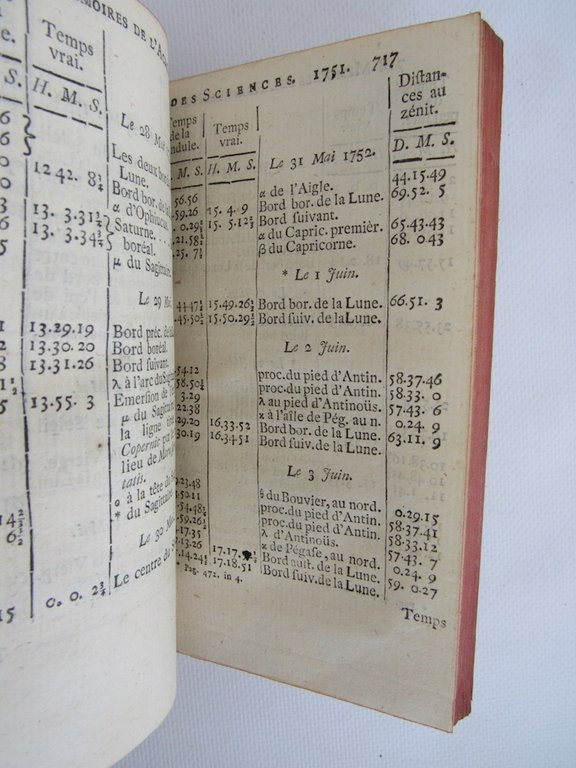 MOIRES DE L'AC
Temps
vrai.
H. M. S.
Le 28 Mai
Les deux bo
Lune.
12 42. 8½
Bord bor. de
α d'Ophiucus
13. 3.31½
Saturne...
13. 3.34½
boréal.
μ du Sagitt
Le 29 Mai
13.29.19
Bord préc. de
13.30.20
Bord boréal.
13.31.26
Bord suivant.
λ à l'arc du Sagi
13.55. 3
Emersion de l
μ du Sagitt
la ligne
Copernic par
lieu de Mon
tatis.
ο à la tête du
* du Sagittaire
Le 30 Ma
Le centre du
0. 0. 2¾
DES SCIENCES. 1751. 717
Temps
de la
ndule.
Temps
vrai.
Distan-
ces au
zénit.
M. S. H. M. S.
D. M. S.
Le 31 Mai 1752.
56.56 α de l'Aigle. 44.15.49
59.26 15. 4. 9 Bord bor. de la Lune. 69.52. 5
15. 5.12 Bord suivant.
21.58 α du Capric. premièr. 65.43.43
25. 7 β du Capricorne. 68. 0.43
* Le 1 Juin.
15.49.26 Bord bor. de la Lune. 66.51. 3
15.50.29 Bord suiv. de la Lune.
Le 2 Juin.
54.12 proc. du pied d'Antin. 58.37.46
58.50 proc. du pied d'Antin. 58.33. 0
3.29 λ au pied d'Antinoüs. 57.43. 6
22.38 à l'aîle de Pég. au n. 0.24. 9
29.20 16.33.52 Bord bor. de la Lune. 63.11. 9
30.19 16.34.51 Bord suiv. de la Lune.
Le 3 Juin.
23.48 du Bouvier, au nord. 0.29.15
50.11 proc. du pied d'Antin. 58.37.41
54.48 proc. du pied d'Antin. 58.33.12
59.26 λ d'Antinoüs. 57.43. 7
17.35 de Pégase, au nord. 0.24. 9
13.26 17.17. Bord aust. de la Lune. 59. 0.27
14.24 17.18.51 Bord suiv. de la Lune.
Pag. 472. in 4.
Temps